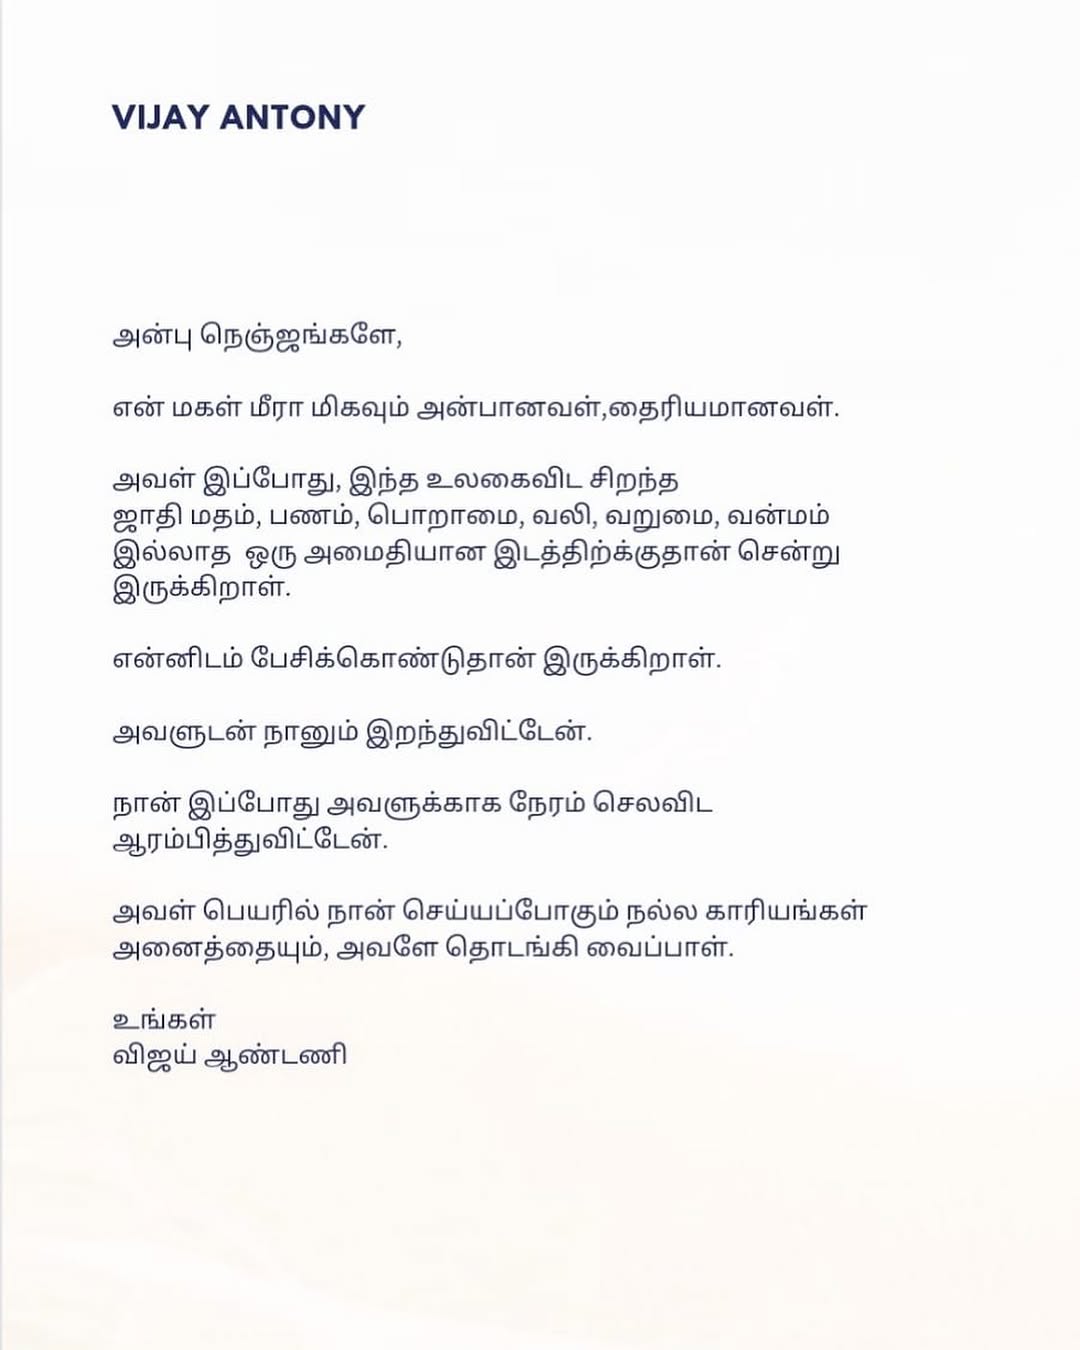 VIJAY ANTONY
அன்பு நெஞ்ஜங்களே,
என் மகள் மீரா மிகவும் அன்பானவள்,தைரியமானவள்.
அவள் இப்போது, இந்த உலகைவிட சிறந்த
ஜாதி மதம், பணம், பொறாமை, வலி, வறுமை, வன்மம்
இல்லாத ஒரு அமைதியான இடத்திற்க்குதான் சென்று
இருக்கிறாள்.
என்னிடம் பேசிக்கொண்டுதான் இருக்கிறாள்.
அவளுடன் நானும் இறந்துவிட்டேன்.
நான் இப்போது அவளுக்காக நேரம் செலவிட
ஆரம்பித்துவிட்டேன்.
அவள் பெயரில் நான் செய்யப்போகும் நல்ல காரியங்கள்
அனைத்தையும், அவளே தொடங்கி வைப்பாள்.
உங்கள்
விஜய் ஆண்டணி